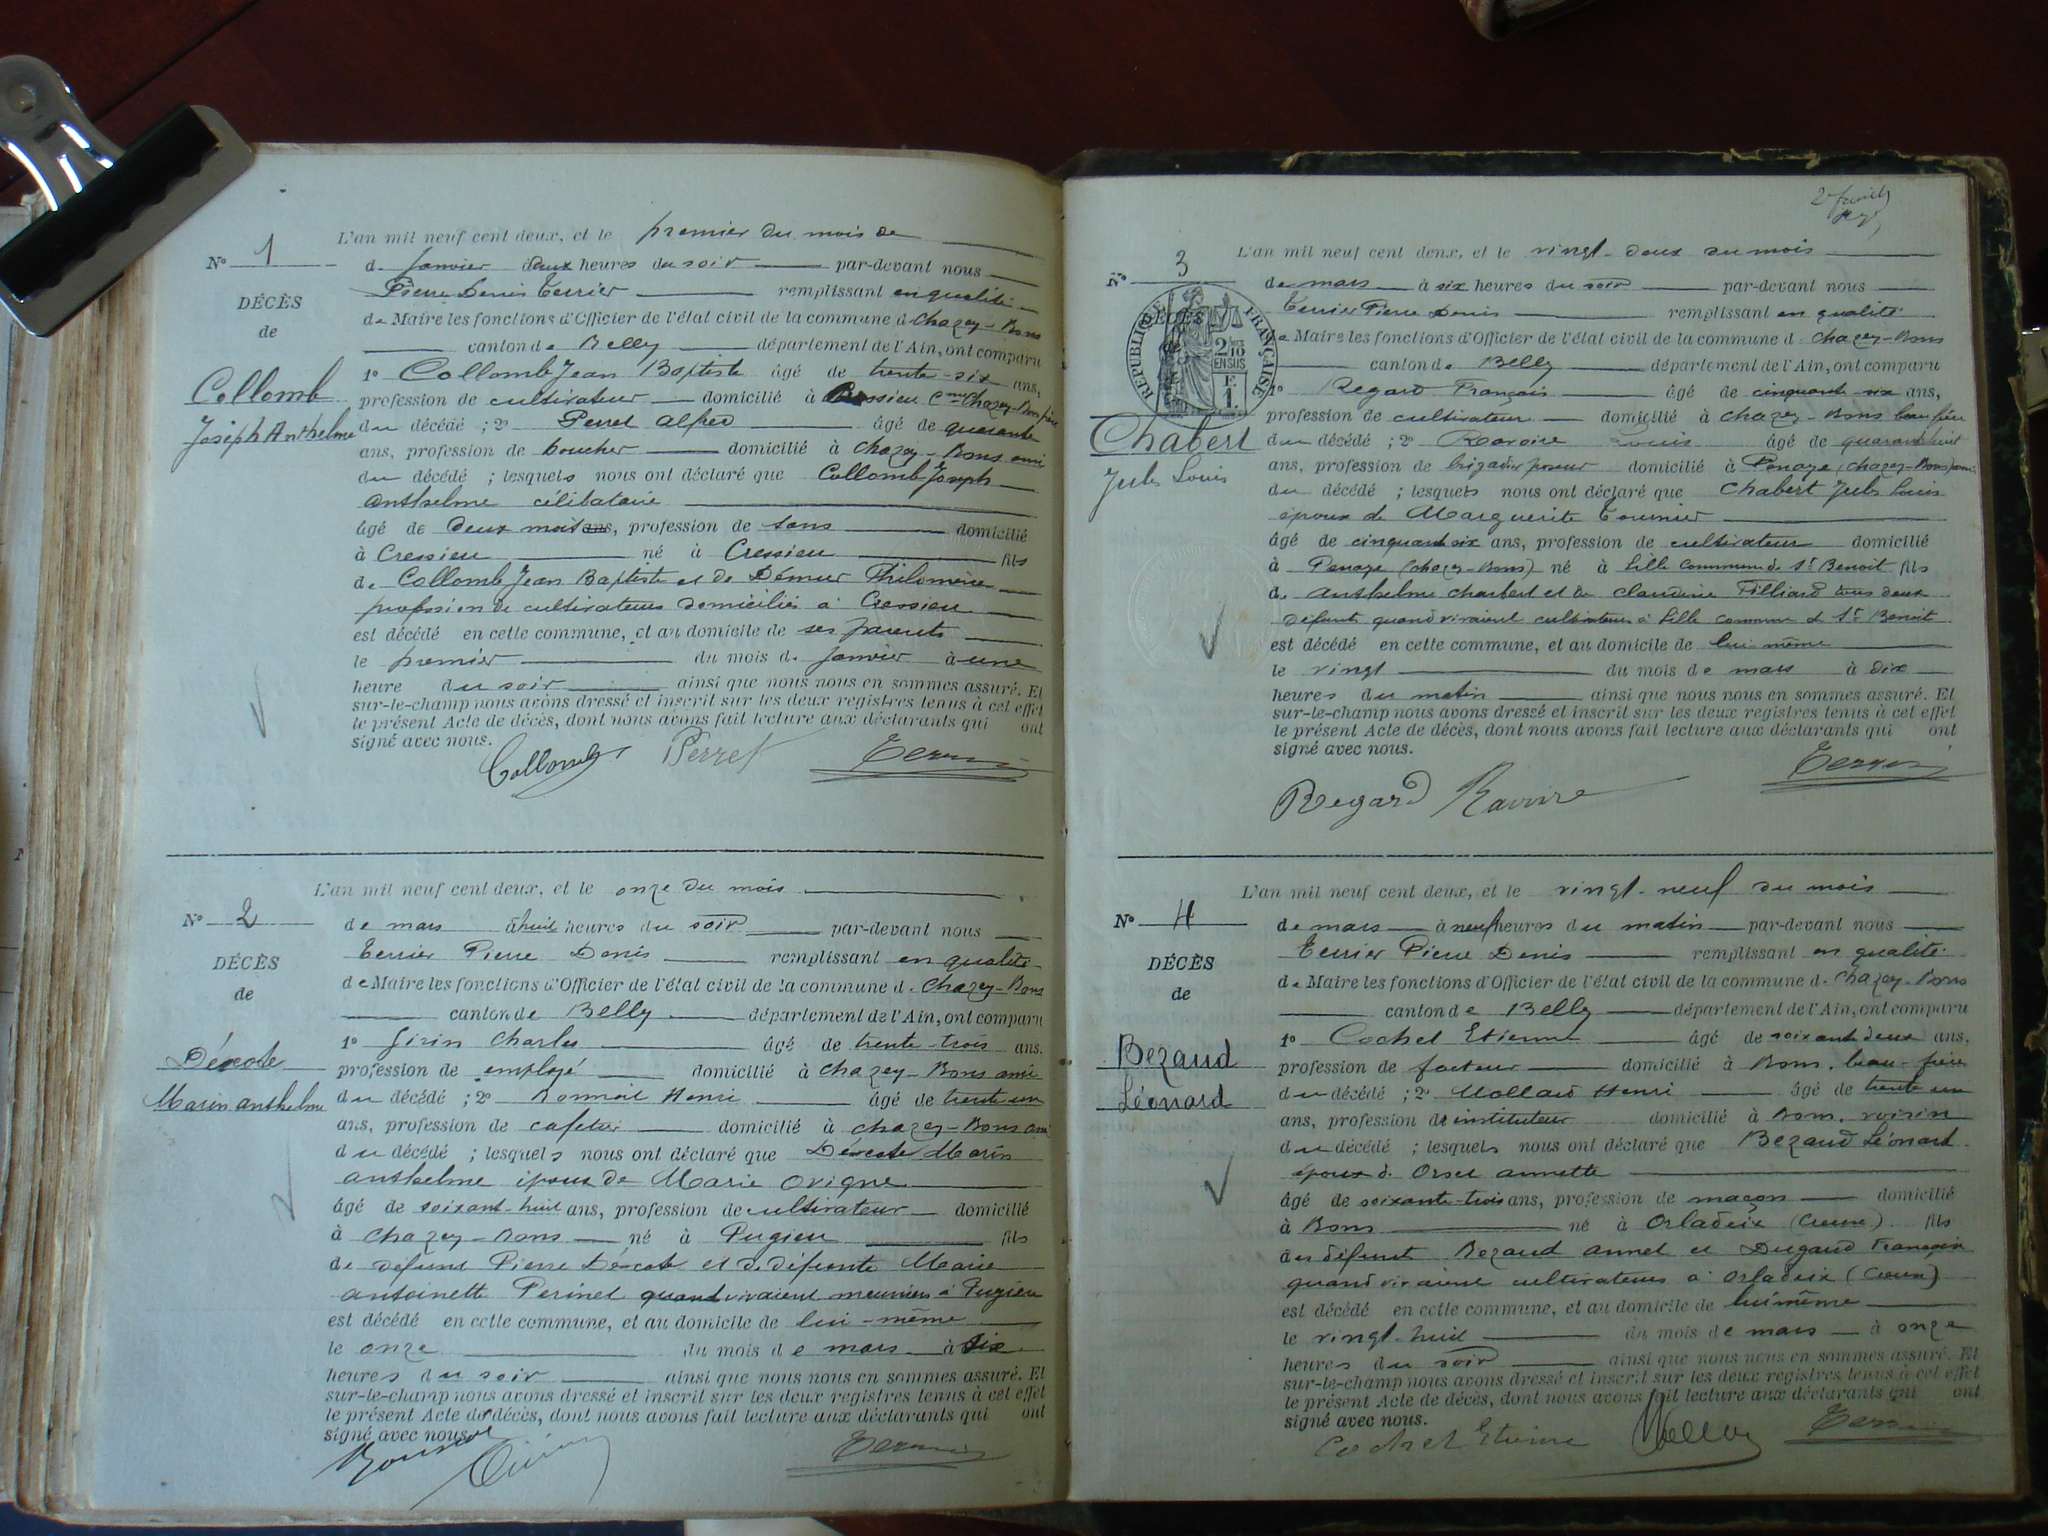 L'an mil neuf cent deux, et le premier du mois de
N° 1
de Janvier à deux heures du soir par-devant nous
DÉCÈS
de
Collomb
Joseph Anthelme
Pierre Denis Terrier remplissant en qualité
de Maire les fonctions d'Officier de l'état civil de la commune d Chazey-Bons
canton de Belley département de l'Ain, ont comparu
1° Collomb Jean Baptiste âgé de trente-six ans,
profession de cultivateur domicilié à Cressieu Cne Chazey-Bons père
du décédé ; 2° Perret Alfred âgé de quarante
ans, profession de boucher domicilié à Chazey-Bons ami
du décédé ; lesquels nous ont déclaré que Collomb Joseph
Anthelme célibataire
âgé de deux mois ans, profession de sans domicilié
à Cressieu né à Cressieu fils
de Collomb Jean Baptiste et de Démeur Philomène
profession de cultivateurs domiciliés à Cressieu
est décédé en cette commune, et au domicile de ses parents
le premier du mois de Janvier à une
heure du soir ainsi que nous nous en sommes assuré. Et
sur-le-champ nous avons dressé et inscrit sur les deux registres tenus à cet effet
le présent Acte de décès, dont nous avons fait lecture aux déclarants qui ont
signé avec nous.
Collomb Perret Terrier
L'an mil neuf cent deux, et le onze du mois
N° 2
DÉCÈS
de
Décote
Marin Anthelme
de mars à huit heures du soir par-devant nous
Terrier Pierre Denis remplissant en qualité
de Maire les fonctions d'Officier de l'état civil de la commune d Chazey-Bons
canton de Belley département de l'Ain, ont comparu
1° Girin Charles âgé de trente-trois ans.
profession de employé domicilié à Chazey-Bons ami
du décédé ; 2° Henri âgé de trente un
ans, profession de cafetier domicilié à Chazey-Bons ami
du décédé ; lesquels nous ont déclaré que Décote Marin
Anthelme époux de Marie
âgé de soixant-huit ans, profession de cultivateur domicilié
à Chazey-Bons né à Pugieu fils
de défunt Pierre Décote et de défunte Marie
Antoinette Perinet quand vivaient meuniers à Pugieu
est décédé en cette commune, et au domicile de lui-même
le onze du mois de mars à six
heures du soir ainsi que nous nous en sommes assuré. Et
sur-le-champ nous avons dressé et inscrit sur les deux registres tenus à cet effet
le présent Acte de décès, dont nous avons fait lecture aux déclarants qui ont
signé avec nous.
Terrier
L'an mil neuf cent deux, et le vingt-deux du mois
N° 3
RÉPUBLIQUE FRANÇAISE
2/10 EN SUS
DÉCÈS
Chabert
Jules Louis
de mars à six heures du soir par-devant nous
Terrier Pierre Denis remplissant en qualité
de Maire les fonctions d'Officier de l'état civil de la commune d Chazey-Bons
canton de Belley département de l'Ain, ont comparu
1° Regard François âgé de cinquante six ans,
profession de cultivateur domicilié à Chazey-Bons beau frère
du décédé ; 2° Ravoire Louis âgé de quarante huit
ans, profession de brigadier poseur domicilié à Penaye (Chazey-Bons) ami
du décédé ; lesquels nous ont déclaré que Chabert Jules Louis
époux de Marguerite Tournier
âgé de cinquante six ans, profession de cultivateur domicilié
à Penaye (Chazey-Bons) né à Lille commune de St Benoit fils
de Anthelme Charbert et de Claudine Pilliard tous deux
défunts quand vivaient cultivateurs à Lille commune de St Benoit
est décédé en cette commune, et au domicile de lui-même
le vingt du mois de mars à dix
heures du matin ainsi que nous nous en sommes assuré. Et
sur-le-champ nous avons dressé et inscrit sur les deux registres tenus à cet effet
le présent Acte de décès, dont nous avons fait lecture aux déclarants qui ont
signé avec nous.
Regard Ravoire Terrier
L'an mil neuf cent deux, et le vingt-neuf du mois
N° 4
DÉCÈS
de
Bezaud
Léonard
de mars à neuf heures du matin par-devant nous
Terrier Pierre Denis remplissant en qualité
de Maire les fonctions d'Officier de l'état civil de la commune d Chazey-Bons
canton de Belley département de l'Ain, ont comparu
1° Cochet Etienne âgé de soixante deux ans,
profession de facteur domicilié à Bons, beau-frère
du décédé ; 2° Mollard Henri âgé de trente un
ans, profession de instituteur domicilié à Bons, voisin
du décédé ; lesquels nous ont déclaré que Bezaud Léonard
époux d. Orset Annette
âgé de soixante-trois ans, profession de maçon domicilié
à Bons né à Orladeix (Creuse) fils
des défunts Bezaud Annet et Dugaud Françoise
quand vivaient cultivateurs à Orladeix (Creuse)
est décédé en cette commune, et au domicile de lui même
le vingt-huit du mois de mars à onze
heures du soir ainsi que nous nous en sommes assuré. Et
sur-le-champ nous avons dressé et inscrit sur les deux registres tenus à cet effet
le présent Acte de décès, dont nous avons fait lecture aux déclarants qui ont
signé avec nous.
Cochet Etienne Terrier